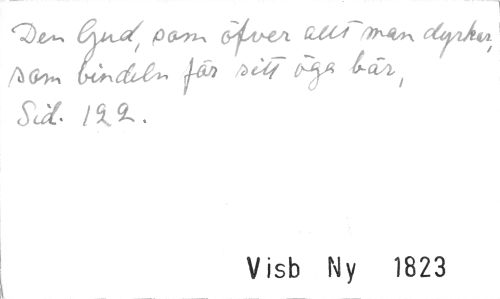 Den Gud, som öfver allt man dyrkar,
som bindeln för sitt öga bär,
Sid. 122.
Visb Ny 1823